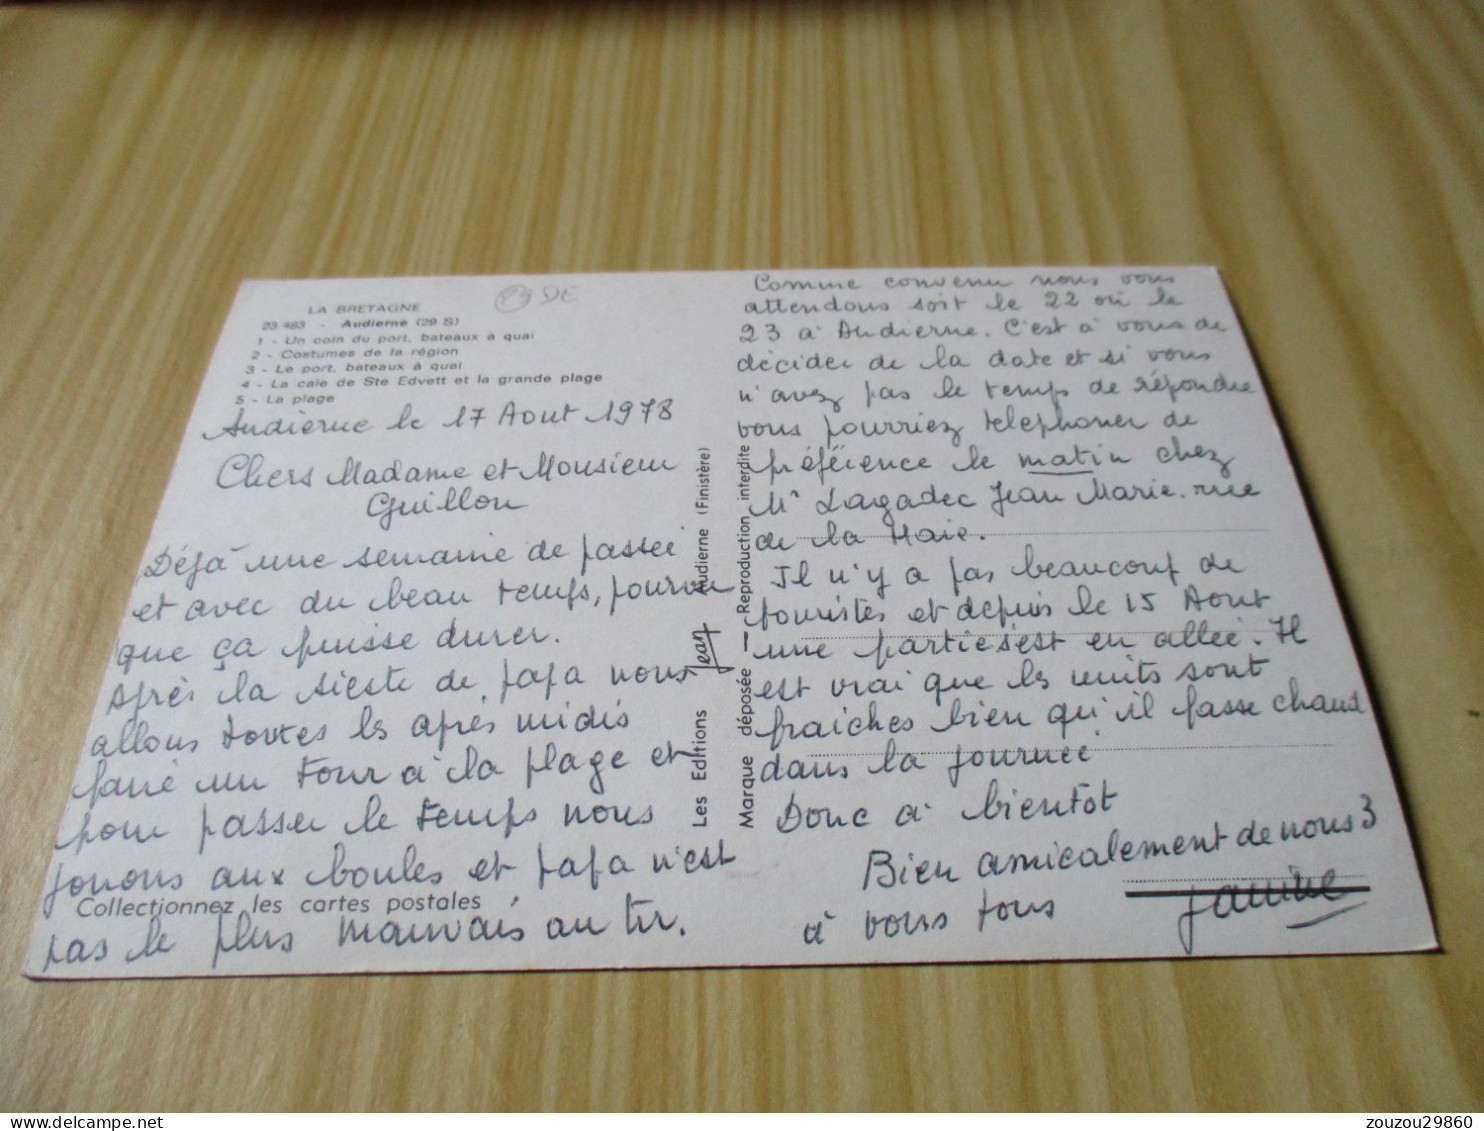 LA BRETAGNE
23 483 - Audierne (29 S)
1 - Un coin du port, bateaux à quai
2 - Costumes de la région
3 - Le port, bateaux à quai
4 - La cale de Ste Edvett et la grande plage
5 - La plage
Audierne le 17 Aout 1978
Chers Madame et Monsieur
Guillou
Déjà une semaine de passée
et avec du beau temps, pourvu
que ça puisse durer.
Après la sieste de papa nous
allons toutes les après midis
faire un tour à la plage et
pour passer le temps nous
jouons aux boules et papa n'est
pas le plus mauvais au tir.
Collectionnez les cartes postales
Les Editions Jean Audierne (Finistère)
Marque déposée - Reproduction interdite
Comme convenu nous vous
attendons soit le 22 ou le
23 à Audierne. C'est à vous de
décider de la date et si vous
n'avez pas le temps de répondre
vous pourriez telephoner de
préférence le matin chez
Mr Lagadec Jean Marie. rue
de la Haie.
Il n'y a pas beaucoup de
touristes et depuis le 15 Aout
une partie s'est en allée. Il
est vrai que les nuits sont
fraiches bien qu'il fasse chaud
dans la journée
Donc à bientôt
Bien amicalement de nous 3
à vous tous
Janine
zouzou29860